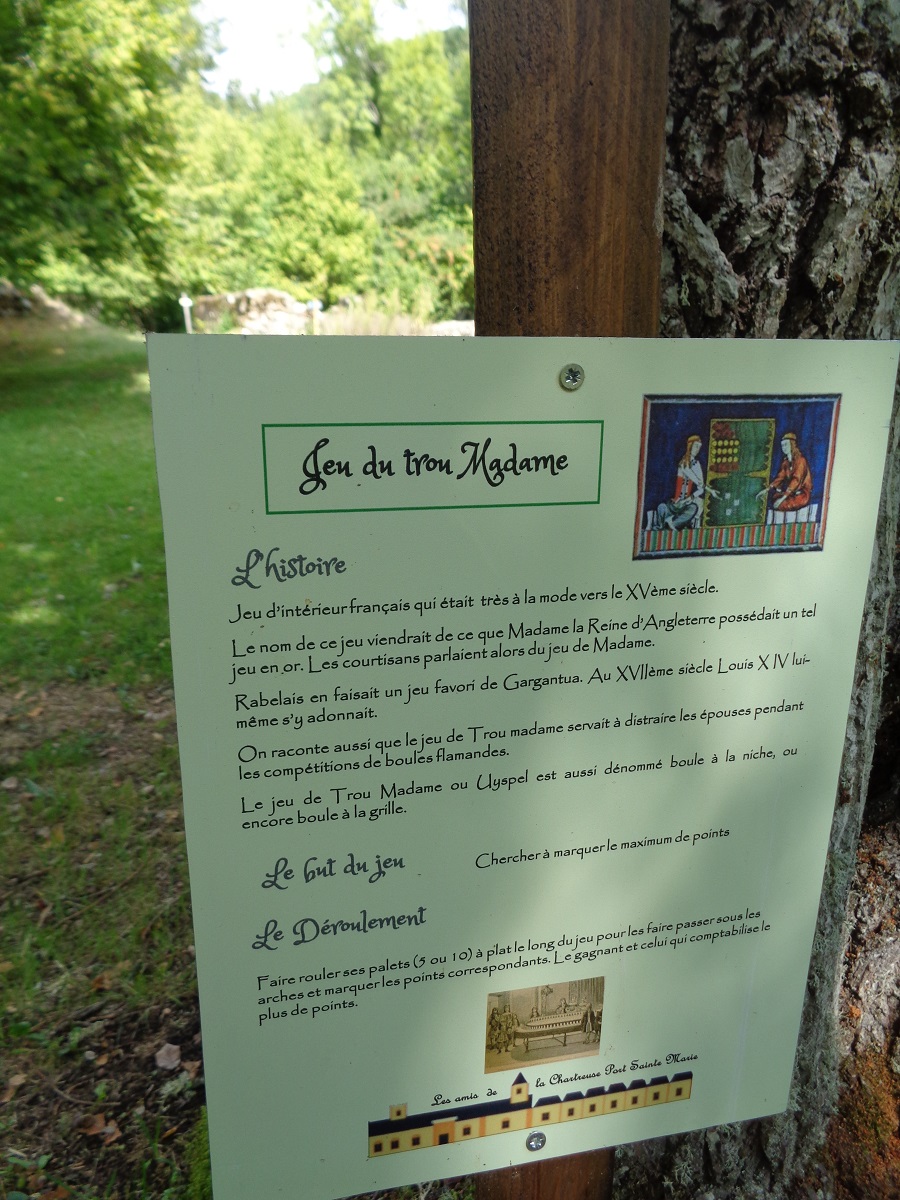 Jeu du trou Madame
L'histoire
Jeu d'intérieur français qui était très à la mode vers le XVème siècle.
Le nom de ce jeu viendrait de ce que Madame la Reine d'Angleterre possédait un tel
jeu en or. Les courtisans parlaient alors du jeu de Madame.
Rabelais en faisait un jeu favori de Gargantua. Au XVIIème siècle Louis X IV lui-
même s'y adonnait.
On raconte aussi que le jeu de Trou madame servait à distraire les épouses pendant
les compétitions de boules flamandes.
Le jeu de Trou Madame ou Uyspel est aussi dénommé boule à la niche, ou
encore boule à la grille.
Le but du jeu
Chercher à marquer le maximum de points
Le Déroulement
Faire rouler ses palets (5 ou 10) à plat le long du jeu pour les faire passer sous les
arches et marquer les points correspondants. Le gagnant et celui qui comptabilise le
plus de points.
Les amis de la Chartreuse Port Sainte Marie